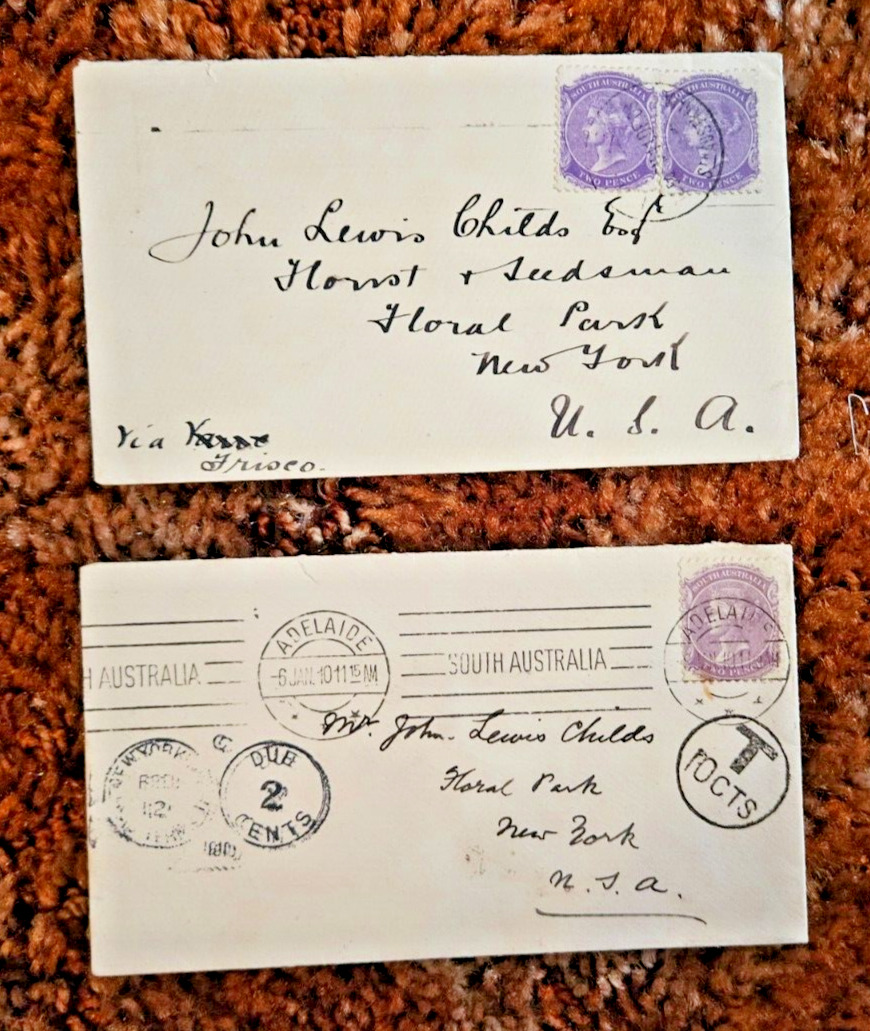 SOUTH AUSTRALIA
TWO PENCE
TWO PENCE
John Lewis Childs Esqr
Florist & Seedsman
Floral Park
New York
U. S. A.
Via
Frisco.
SOUTH AUSTRALIA
TWO PENCE
ADELAIDE
ADELAIDE
-6 JAN. 10 11 15 AM
H AUSTRALIA
SOUTH AUSTRALIA
Mr. John Lewis Childs
Floral Park
New York
U. S. A.
T
10CTS
NEW YORK
DUE
2
CENTS